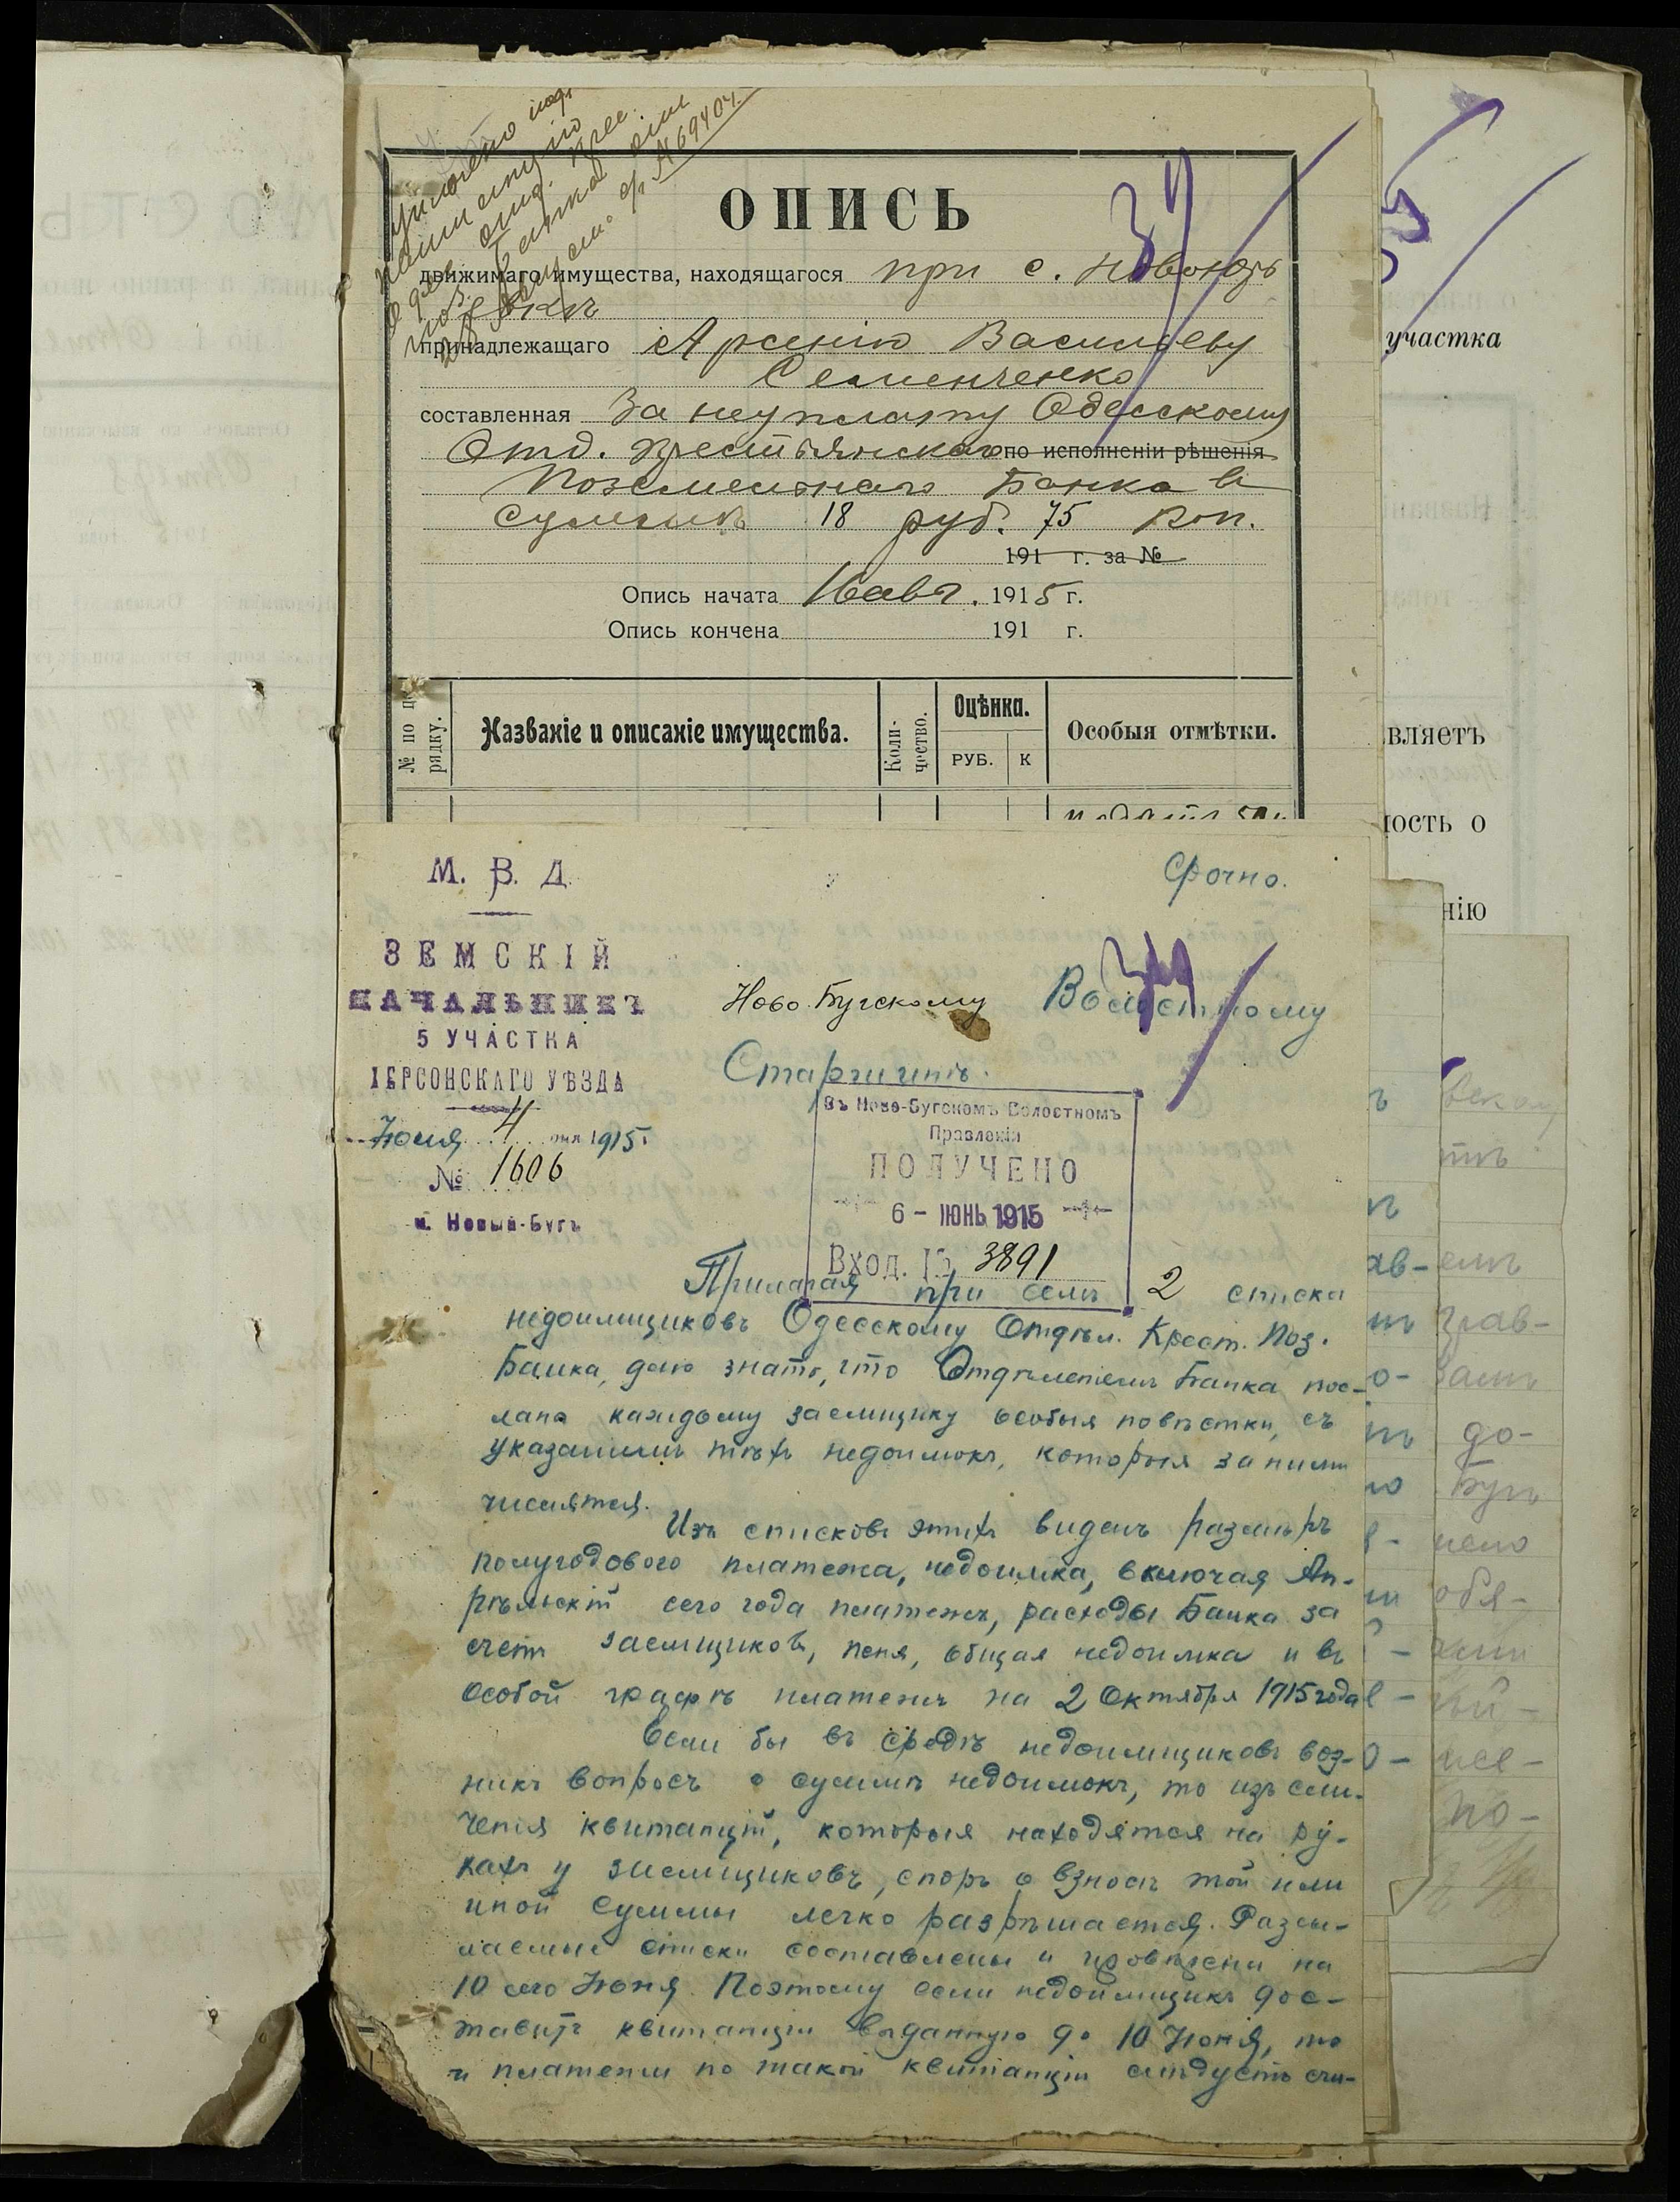 ОПИСЬ
движимаго имущества, находящагося при с. Новоюрь
евкъ
принадлежащаго Арсенію Васильеву
Семенченко
составленная За неуплату Одесскому
Отд. Крестьянскаго по исполненіи рѣшенія
Поземельнаго Банка въ
суммѣ 18 руб. 75 коп.
191 г. за №
Опись начата 16 авг. 1915 г.
Опись кончена 191 г.
№ по по-
рядку.
Названіе и описаніе имущества.
Коли-
чество.
Оцѣнка.
РУБ. К
Особыя отмѣтки.
М. В. Д.
Срочно.
ЗЕМСКІЙ
НАЧАЛЬНИКЪ
5 УЧАСТКА
ХЕРСОНСКАГО УѢЗДА
Іюня 4 дня 1915 г.
№ 1606
м. Новый-Бугъ
34
Ново-Бугскому Волостному
Старшинѣ.
Въ Ново-Бугскомъ Волостномъ
Правленіи
ПОЛУЧЕНО
6 - ІЮНЬ 1915
Вход. № 3891
Прилагая при семъ 2 списка
недоимщиковъ Одесскому Отдѣл. Крест. Поз.
Банка, даю знать, что Отдѣленіемъ Банка пос-
ланы каждому заемщику особыя повѣстки, съ
указаніемъ тѣхъ недоимокъ, которыя за ними
числятся.
Изъ списковъ этихъ виденъ размѣръ
полугодового платежа, недоимка, включая Ап-
рѣльскій сего года платежъ, расходы Банка за
счетъ заемщиковъ, пеня, общая недоимка и въ
особой графѣ платежъ на 2 Октября 1915 года
Если бы въ средѣ недоимщиковъ воз-
никъ вопросъ о суммѣ недоимокъ, то изъ сли-
ченія квитанцій, которыя находятся на ру-
кахъ у заемщиковъ, споръ о взносѣ той или
иной суммы легко разрѣшается. Разсы-
лаемые списки составлены и провѣрены на
10 сего Іюня. Поэтому если недоимщикъ дос-
тавитъ квитанцію выданную до 10 Іюня, то
и платежи по такой квитанціи слѣдуетъ счи-
участка
вляетъ
ность о
нію